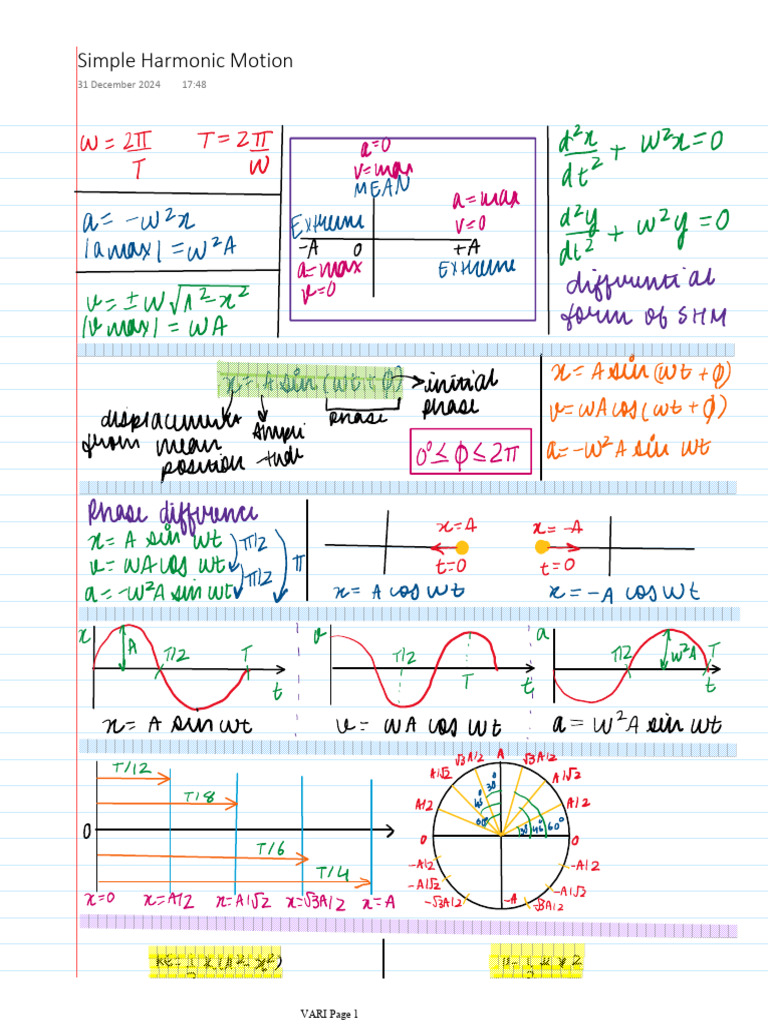 Simple Harmonic Motion
31 December 2024 17:48
ω = 2π/T T = 2π/ω
a = -ω²x
|a max| = ω²A
v = ±ω√A²-x²
|v max| = ωA
a=0
v=max
MEAN
a=max
v=0
Extreme
-A 0 +A
a=max
v=0
Extreme
d²x/dt² + ω²x=0
d²y/dt² + ω²y=0
differential
form of SHM
x = A sin (ωt+ϕ) → initial phase
phase
displacement from mean position
Ampli-tude
0° ≤ ϕ ≤ 2π
x = A sin (ωt + ϕ)
v = ωA cos (ωt + ϕ)
a = -ω²A sin ωt
Phase difference
x = A sin ωt
v = ωA cos ωt
a = -ω²A sin ωt
π/2
π/2
π
x=A
t=0
x = A cos ωt
x = -A
t=0
x = -A cos ωt
x A T/2 T t
x = A sin ωt
v T/2 T t
v = ωA cos ωt
a T/2 ω²A T t
a = ω²A sin ωt
T/12
T/8
0
T/6
T/4
x=0 x=A/2 x=A/√2 x=√3A/2 x=A
√3A/2 A √3A/2
A/√2 A/√2
A/2 A/2
30°
45°
60°
30° 45° 60°
0 0
-A/2 -A/2
-A/√2 -A/√2
-√3A/2 -A -√3A/2
VARI Page 1